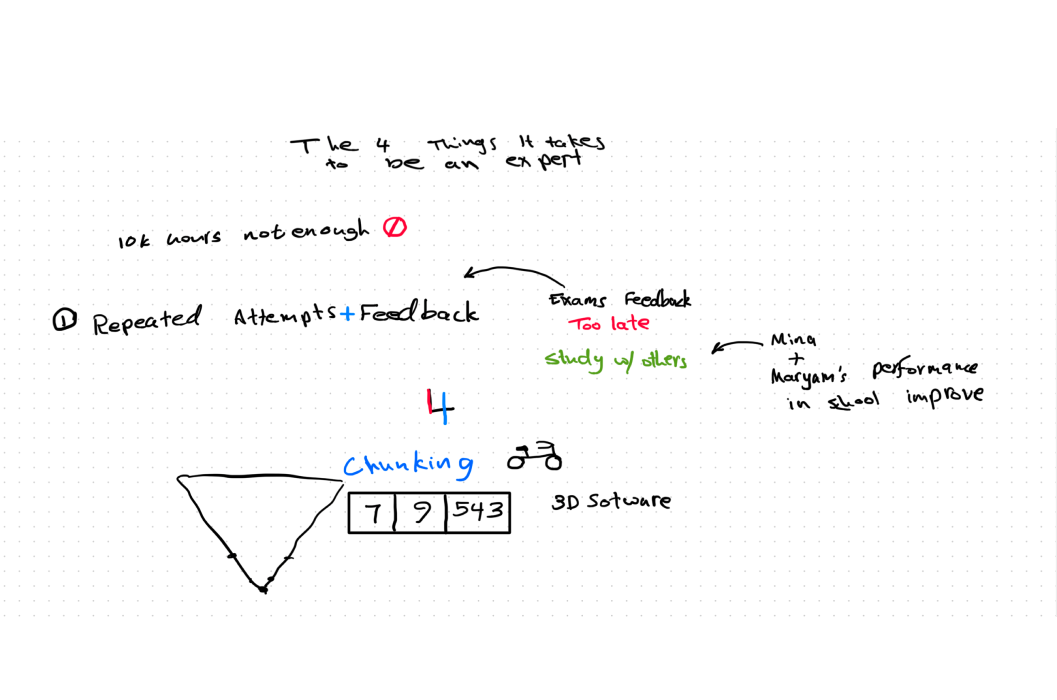 The 4 Things It takes
to be an expert
10k hours not enough
① Repeated Attempts + Feedback
Exams Feedback
Too late
Study w/ others
Mina
+
Maryam's performance
in school improve
4
Chunking
7 9 543
3D Sotware